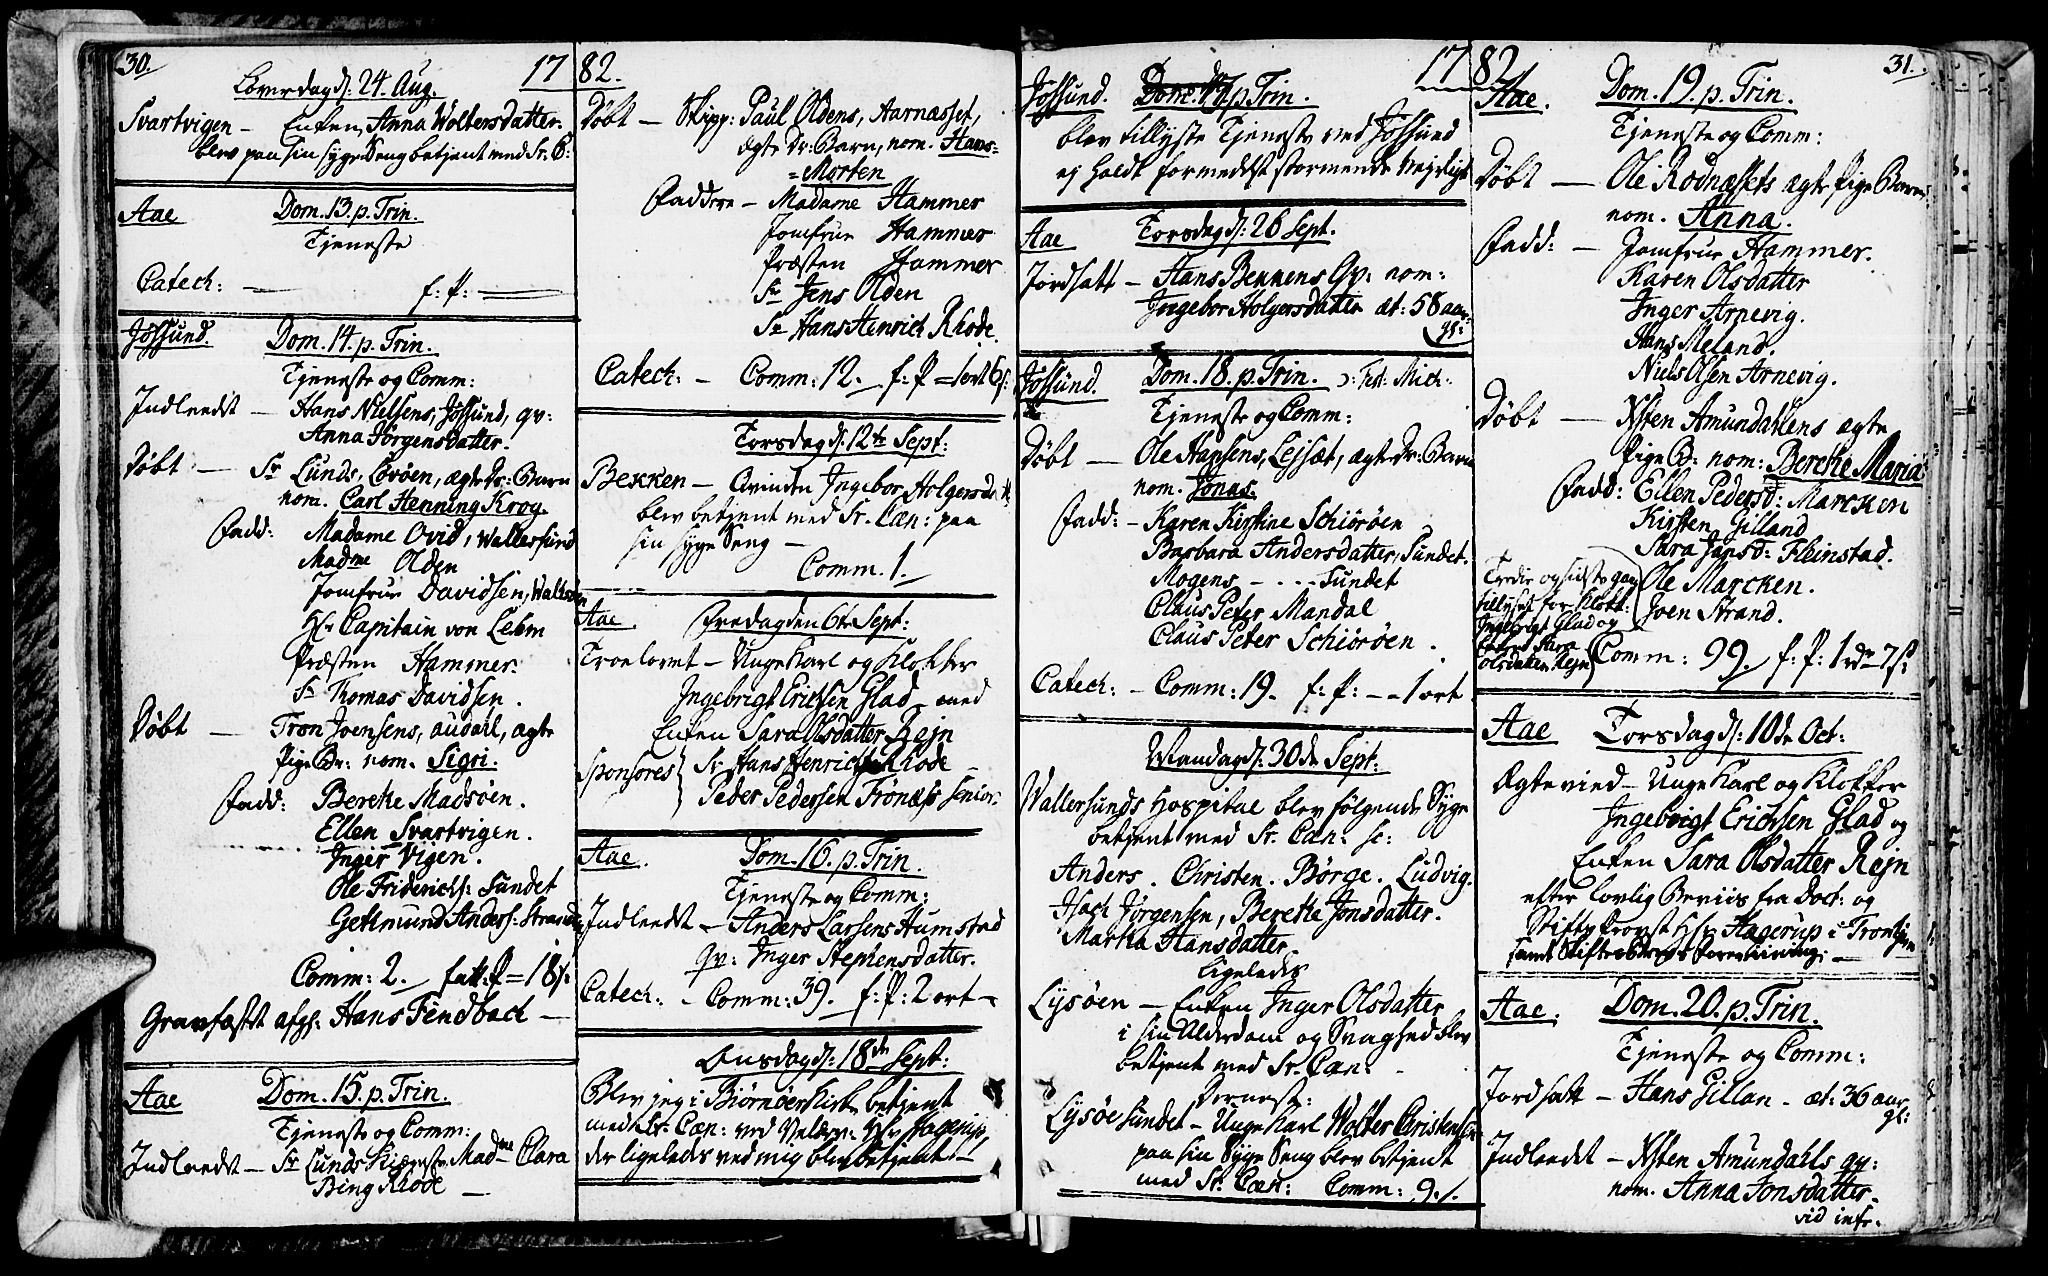 30.
17 82.
Löverdag d: 24. Aug.
Svartvigen - Enken Anna Woltersdatter
blev paa sin Syge Seng betjent med Sr. C:
Aae Dom. 13. p. Trin.
Tjeneste
Catech: — f: P: —
Jössund. Dom. 14. p. Trin.
Tjeneste og Comm:
Indleedt - Hans Nielsens, Jössund, qv:
Anna Jörgensdatter.
Döbt - Sr Lunds, Lovöen, ægte Dr: Barn
nom. Carl Henning Krog.
Fadd: Madame Ovid, Wallersund
Madme Olden
Jomfrue Davidsen, Wallersund
Hr Capitain von Lebm
Præsten Hammer.
Sr Thomas Davidsen.
Döbt - Tron Joensens, audal, ægte
Pige B: nom. Sigri.
Fadd: Berethe Madsöen.
Ellen Svartvigen.
Inger Vigen.
Ole Friderichs: Sundet
Gettmund Anders: Strand
Comm: 2. fatt: P = 18 s:
Gravfæstet afg: Hans Fendbach —
Aae Dom. 15. p. Trin.
Tjeneste og Comm:
Indleedt - Sr Lunds Kiæreste Madme Clara
Bing Rhode —
Döbt - Skipp: Paul Oldens, Aarnæsset,
ægte Dr: Barn, nom. Hans=
=Morten
Faddere - Madame Hammer
Jomfrue Hammer
Præsten Hammer
Sr Jens Olden
Sr Hans Henrich Rhode.
Catech: - Comm: 12. f: P = 1 ort 6 s:
Torsdag d: 12te Sept:
Bekken - Qvinden Ingebor Holgersd:
blev betjent med Sr. Cæn: paa
sin syge Seng —
Comm. 1.
Aae. Fredag den 6te Sept:
Troelovet - Unge Karl og Klokker
Ingebrigt Erichsen Glad - med
Enken Sara Olsdatter Rejn
Sponsores Sr. Hans Henrich Rhode -
Peder Pedersen Frönæss senior.
Aae. Dom. 16. p. Trin.
Tjeneste og Comm:
Indleedt - Anders Larsens Humstad
qv: Inger Stephensdatter.
Catech: - Comm: 39. f: P: 2 ort -
Onsdag d: 18de Sept:
Blev jeg i Biörnöer Kirke betjent
med Sr. Cæn: ved Velærv: Hr Hagerup
der ligeledes ved mig blev betjent —
17 82.
31.
Jössund. Dom. 17. p. Trin.
blev tillyste Tjeneste ved Jössund
ej holdt formedelst stormende Vejrligt
Aae Torsdag d: 26 Sept.
Jordsatt - Hans Bennens Qv: nom:
Ingebor Holgersdatter æt: 58 aar
gl:
Jössund. Dom. 18. p. Trin. ɔ: Fest: Mich:
Tjeneste og Comm:
Döbt - Ole Hansens, Lejsæt, ægte Dr: Barn
nom. Jonas.
Fadd: - Karen Kirstine Schiöröen
Barbara Andersdatter, Sundet.
Mogens - . . . Sundet
Claus Peter Mandal
Claus Peter Schiöröen.
Catech: - Comm: 19. f: P: - - 1 ort
Mandag d: 30de Sept:
Wallersunds Hospital blev fölgende Syge
betjent med Sr. Cæn: sc:
Anders. Christen. Börge. Ludvig.
Isach Jörgensen, Berethe Jonsdatter.
Martha Hansdatter.
Ligeledes
Lysöen - Enken Inger Olsdatter
i sin Alderdom og Svaghed blev
betjent med Sr. Cæn: -
Dernæst:
Lysöe Sundet - Unge Karl Wolter Christensen
paa sin Syge Seng blev betjent
med Sr. Cæn: Comm: 9.
Aae. Dom. 19. p. Trin.
Tjeneste og Comm:
Döbt - Ole Rödnæssets ægte Pige Barn
nom. Anna.
Fadd: - Jomfrue Hammer.
Karen Olsdatter
Inger Arnevig.
Hans Meland.
Niels Olsen Arnevig.
Döbt - Østen Amundahlens ægte
Pige B: nom: Berethe Maria
Fadd: Ellen Pedersd: Marcken
Kirsten Gilland
Sara Jansd: Fleinstad.
Ole Marcken.
Joen Strand.
Tredie og sidste gang
tillyst for Klokk:
Ingebrigt Glad og
Enken Sara
Olsdatter Rejn
Comm: 99. f: P: 1 rdr 7 s:
Aae Torsdag d: 10de Oct:
Ægtevied - Unge Karl og Klokker
Ingebrigt Erichsen Glad og
Enken Sara Olsdatter Rejn
efter lovlig Beviis fra Doct: og
Stifts Provst Hr Hagerup i Tronhiem
samt
Aae. Dom. 20. p. Trin.
Tjeneste og Comm:
Jordsatt - Hans Gillan - æt: 36 aar
gl:
Indleedt - Østen Amundahls qv:
nom. Anna Jonsdatter.
vid infr.